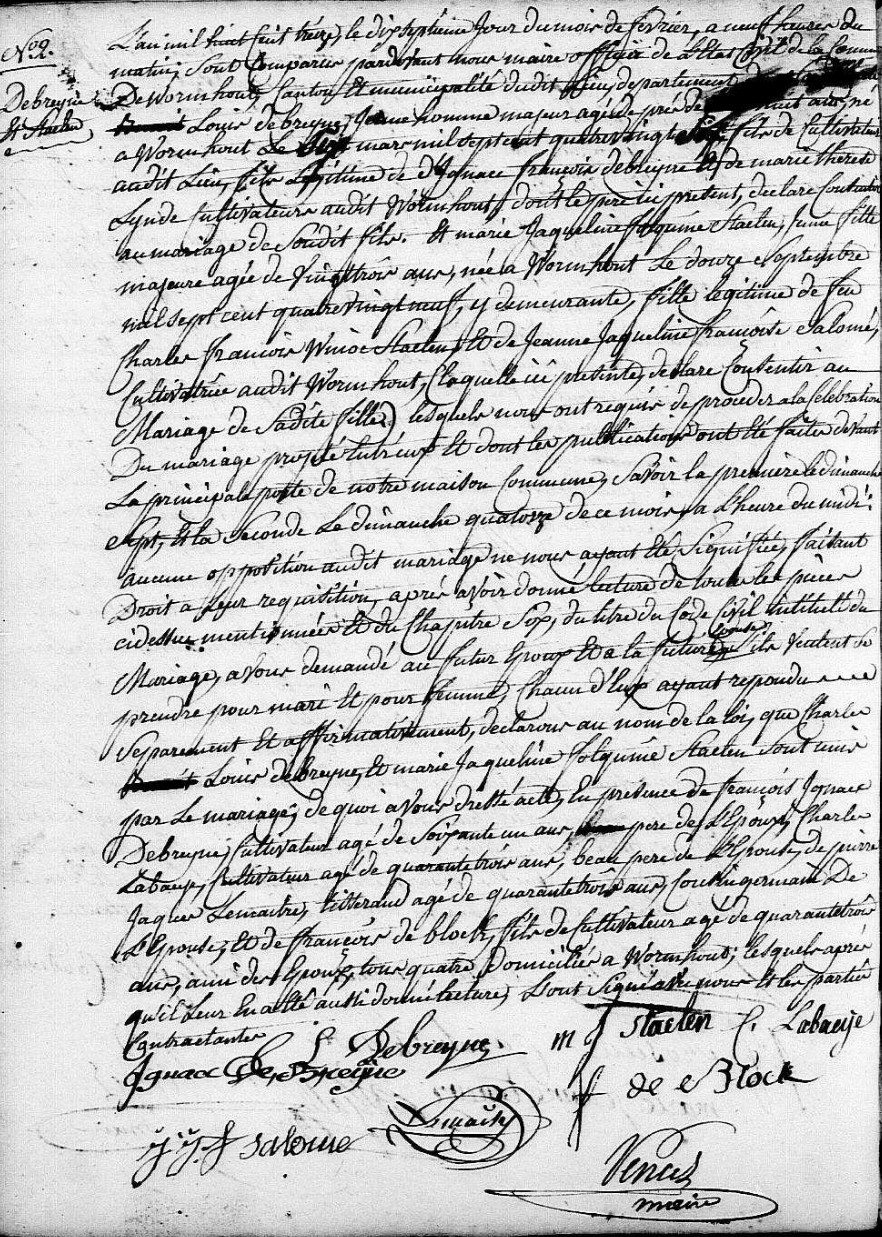 N.º 9.
Debreyne
et Staelen
L'an mil huit cent treize, le dix septieme jour du mois de fevrier, a neuf heures du
matin, sont comparus pardevant nous maire officier de l'Etat Civil de la Commune
De Wormhout, Canton et municipalité dudit lieu, departement
Louis debreyne, Jeune homme majeur agé de près de huit ans, né
a Wormhout Le mars mil sept cent quatrevingt fils de Cultivateur
audit Lieu, fils Legitime de d'Ignace francois debreyne et de marie therese
Lynde Cultivateurs audit Wormhout, dont le pere ici present, declare Consentir
au mariage de Soudit fils. Et marie Jaqueline folquine Staelen, Jeune fille
majeure agée de Vingttrois ans, née a Wormhout Le douze Septembre
mil sept cent quatrevingt neuf, y demeurante, fille legitime de feu
Charles francois Winoc Staelen, Et de Jeanne Jaqueline francoise Salomé,
Cultivatrice audit Wormhout, Laquelle ici presente, declare Consentir au
Mariage de Sadite fille; lesquels nous ont requis de proceder a la Celebration
Du mariage projeté Entr'eux Et dont les publications ont Eté faites devant
La principale porte de notre maison Commune, Savoir la premiere le dimanche
Sept, Et la Seconde Le dimanche quatorze de ce mois, a l'heure du midi;
aucune opposition audit mariage ne nous ayant Eté Signifiée, faisant
Droit a Leur requisition, après avoir donné lecture de toutes les pieces
cidessus mentionnées Et du Chapitre Six, du titre du Code Civil intitulé du
Mariage, avons demandé au futur Epoux Et a la future Epouse s'ils veulent Se
prendre pour mari Et pour femme, Chacun d'Eux ayant repondu
Separement Et affirmativement, declarons au nom de la loi, que Charles
Louis debreyne, Et marie Jaqueline folquine Staelen Sont unis
par Le mariage; de quoi avons dressé acte, En presence de francois Ignace
Debreyne, Cultivateur agé de Soixante un ans, pere de L'Epoux, Charles
Labaeye, Cultivateur agé de quarantetrois ans, beau pere de L'Epouse, de pierre
Jaques Lemaitre, tisserand agé de quarantetrois ans, Cousin germain De
L'Epouse; Et de francois de block, fils de Cultivateur agé de quarantetrois
ans, ami des Epoux, tous quatre Domiciliés a Wormhout; lesquels après
qu'il Leur En a Eté aussi donné lecture, L'ont Signé avec nous Et les parties
Contractantes
L. Debreyne. m J Staelen C. Labaeije
Ignace De Breijne
f de Block
Lemaitre
J. J. f salome
maire